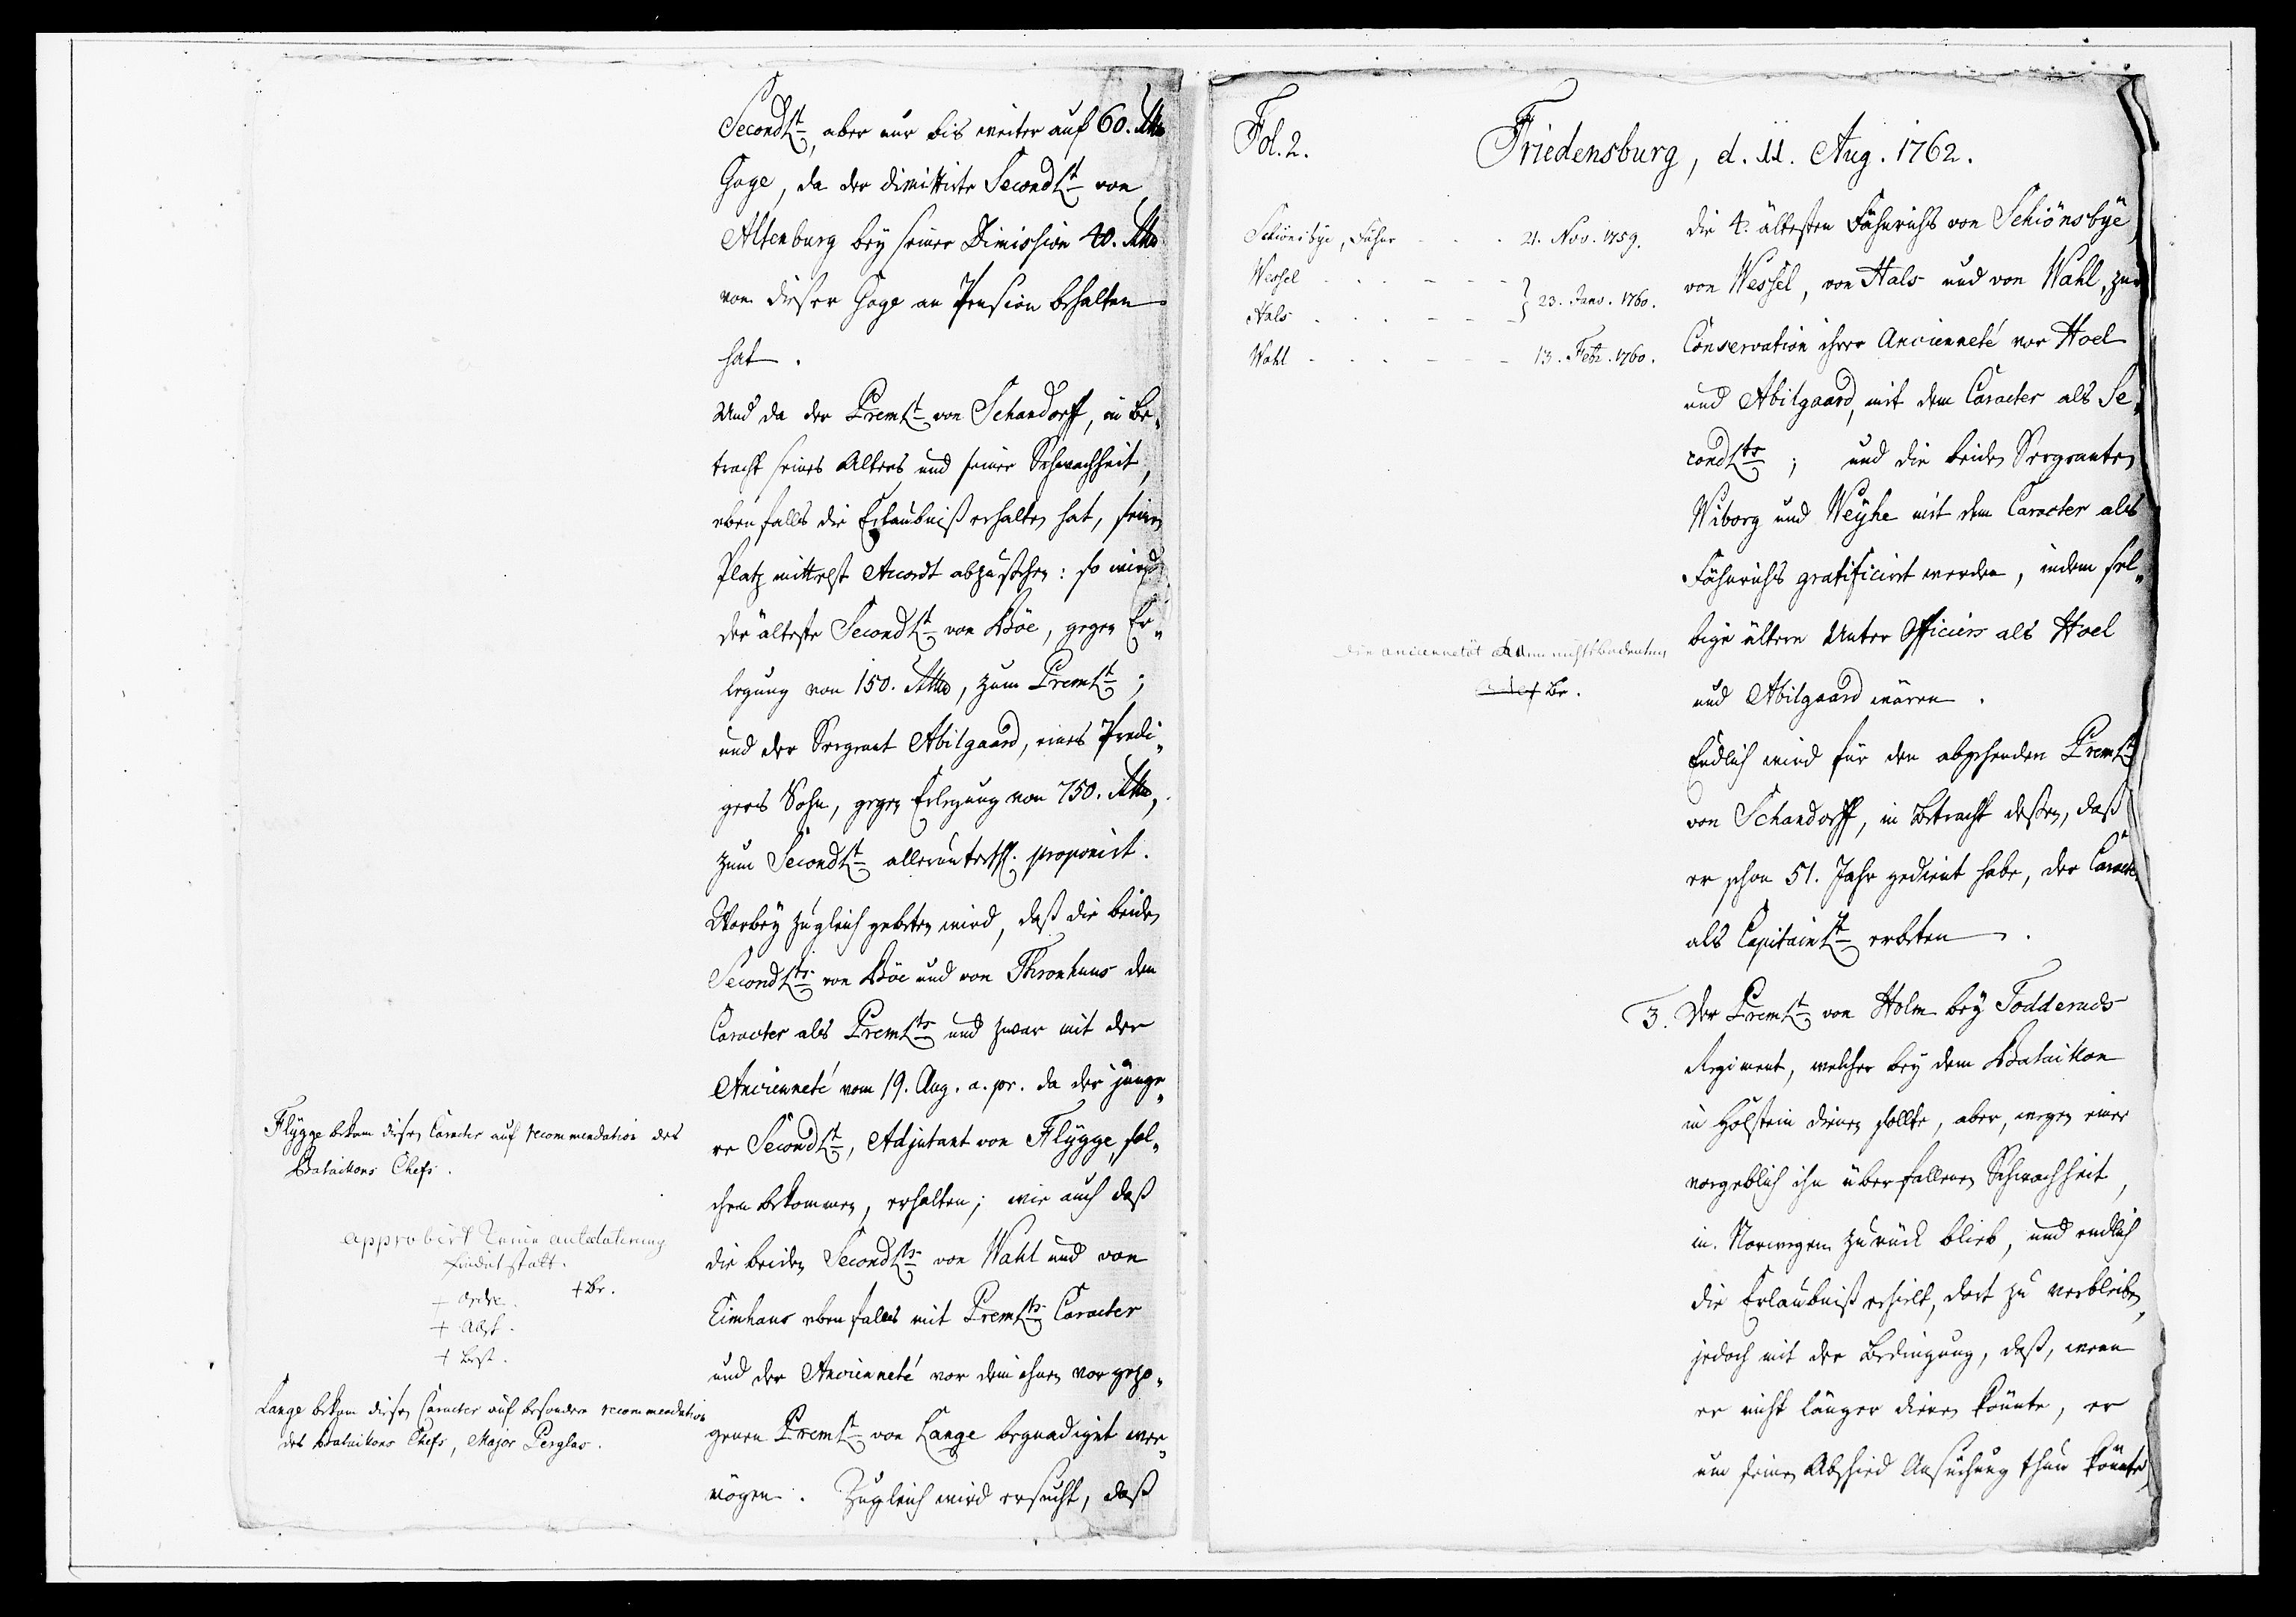 SecondLt, aber nur bis weiter auf 60. Rthlr
Gage, da der dimittirte SecondLt von
Altenburg bey seiner Dimission 40. Rthlr
von dieser Gage an Pension behalten
hat.
Und da der PremLt von Schandorff, in Be-
tracht seines Alters und seiner Schwachheit,
ebenfalls die Erlaubniß erhalten hat, seinen
Platz mittelst Accordt abzustehen: so wird
der älteste SecondLt von Böe, gegen Er-
legung von 150. Rthlr, zum PremLt;
und der Sergeant Abilgaard, eines Predi-
gers Sohn, gegen Erlegung von 750. Rthlr,
zum SecondLt allerunterth. proponirt.
Worbey zugleich gebeten wird, daß die beiden
SecondLts von Böe und von Thronhuus den
Caracter als PremLts und zwar mit der
Ancienneté vom 19. Aug. a. pr. da der jünge-
re SecondLt, Adjutant von Flygge, sol-
chen bekommen, erhalten; wie auch daß
die beiden SecondLts von Wahl und von
Eimhaus ebenfalls mit PremLts Caracter
und der Ancienneté vor dem ihnen vorgezo-
genen PremLt von Lange begnadiget wer-
mögen. Zugleich wird ersucht, daß
Flygge bekam diesen Caracter auf recommendation des
Bataillons Chefs.
approbirt keine antedatirung
findet statt.
+ Ordre. + Br.
+ Absch.
+ Best.
Lange bekam diesen Caracter auf besondere recommendation
des Bataillons Chefs, Major Perglas.
Fol. 2.
Friedensburg, d. 11. Aug. 1762.
Schiönsbye, Fähnr - - - 21. Nov. 1759.
Wessel - - - } 23. Janv. 1760.
Hals - - -
Wahl - - - 13. Febr. 1760.
die 4. ältesten Fähnrichs von Schiönsbye,
von Wessel, von Hals und von Wahl, zur
Conservation ihrer Ancienneté vor Hoel
und Abilgaard, mit dem Caracter als Se-
condLts; und die beiden Sergeanten
Wiborg und Weyhe mit dem Caracter als
Fähnrichs gratificirt werden, indem sel-
bige ältere Unter Officiers als Hoel
und Abilgaard wären.
die anciennetät kann nichts bedeuten
Br.
Endlich wird für den abgehenden PremLt
von Schandorff, in Betracht deßen, daß
er schon 51. Jahr gedient habe, der Caracter
als CapitainLt erbeten.
3. Der PremLt von Holm bey Todderuds
Regiment, welcher bey dem Bataillon
in Holstein dienen sollte, aber, wegen einer
vorgeblich ihn überfallenen Schwachheit,
in Norwegen zurück blieb, und endlich
die Erlaubniß erhielt, dort zu verbleiben,
jedoch mit der Bedingung, daß, wenn
er nicht länger dienen könnte, er
um seinen Abschied Ansuchung thun könnte,